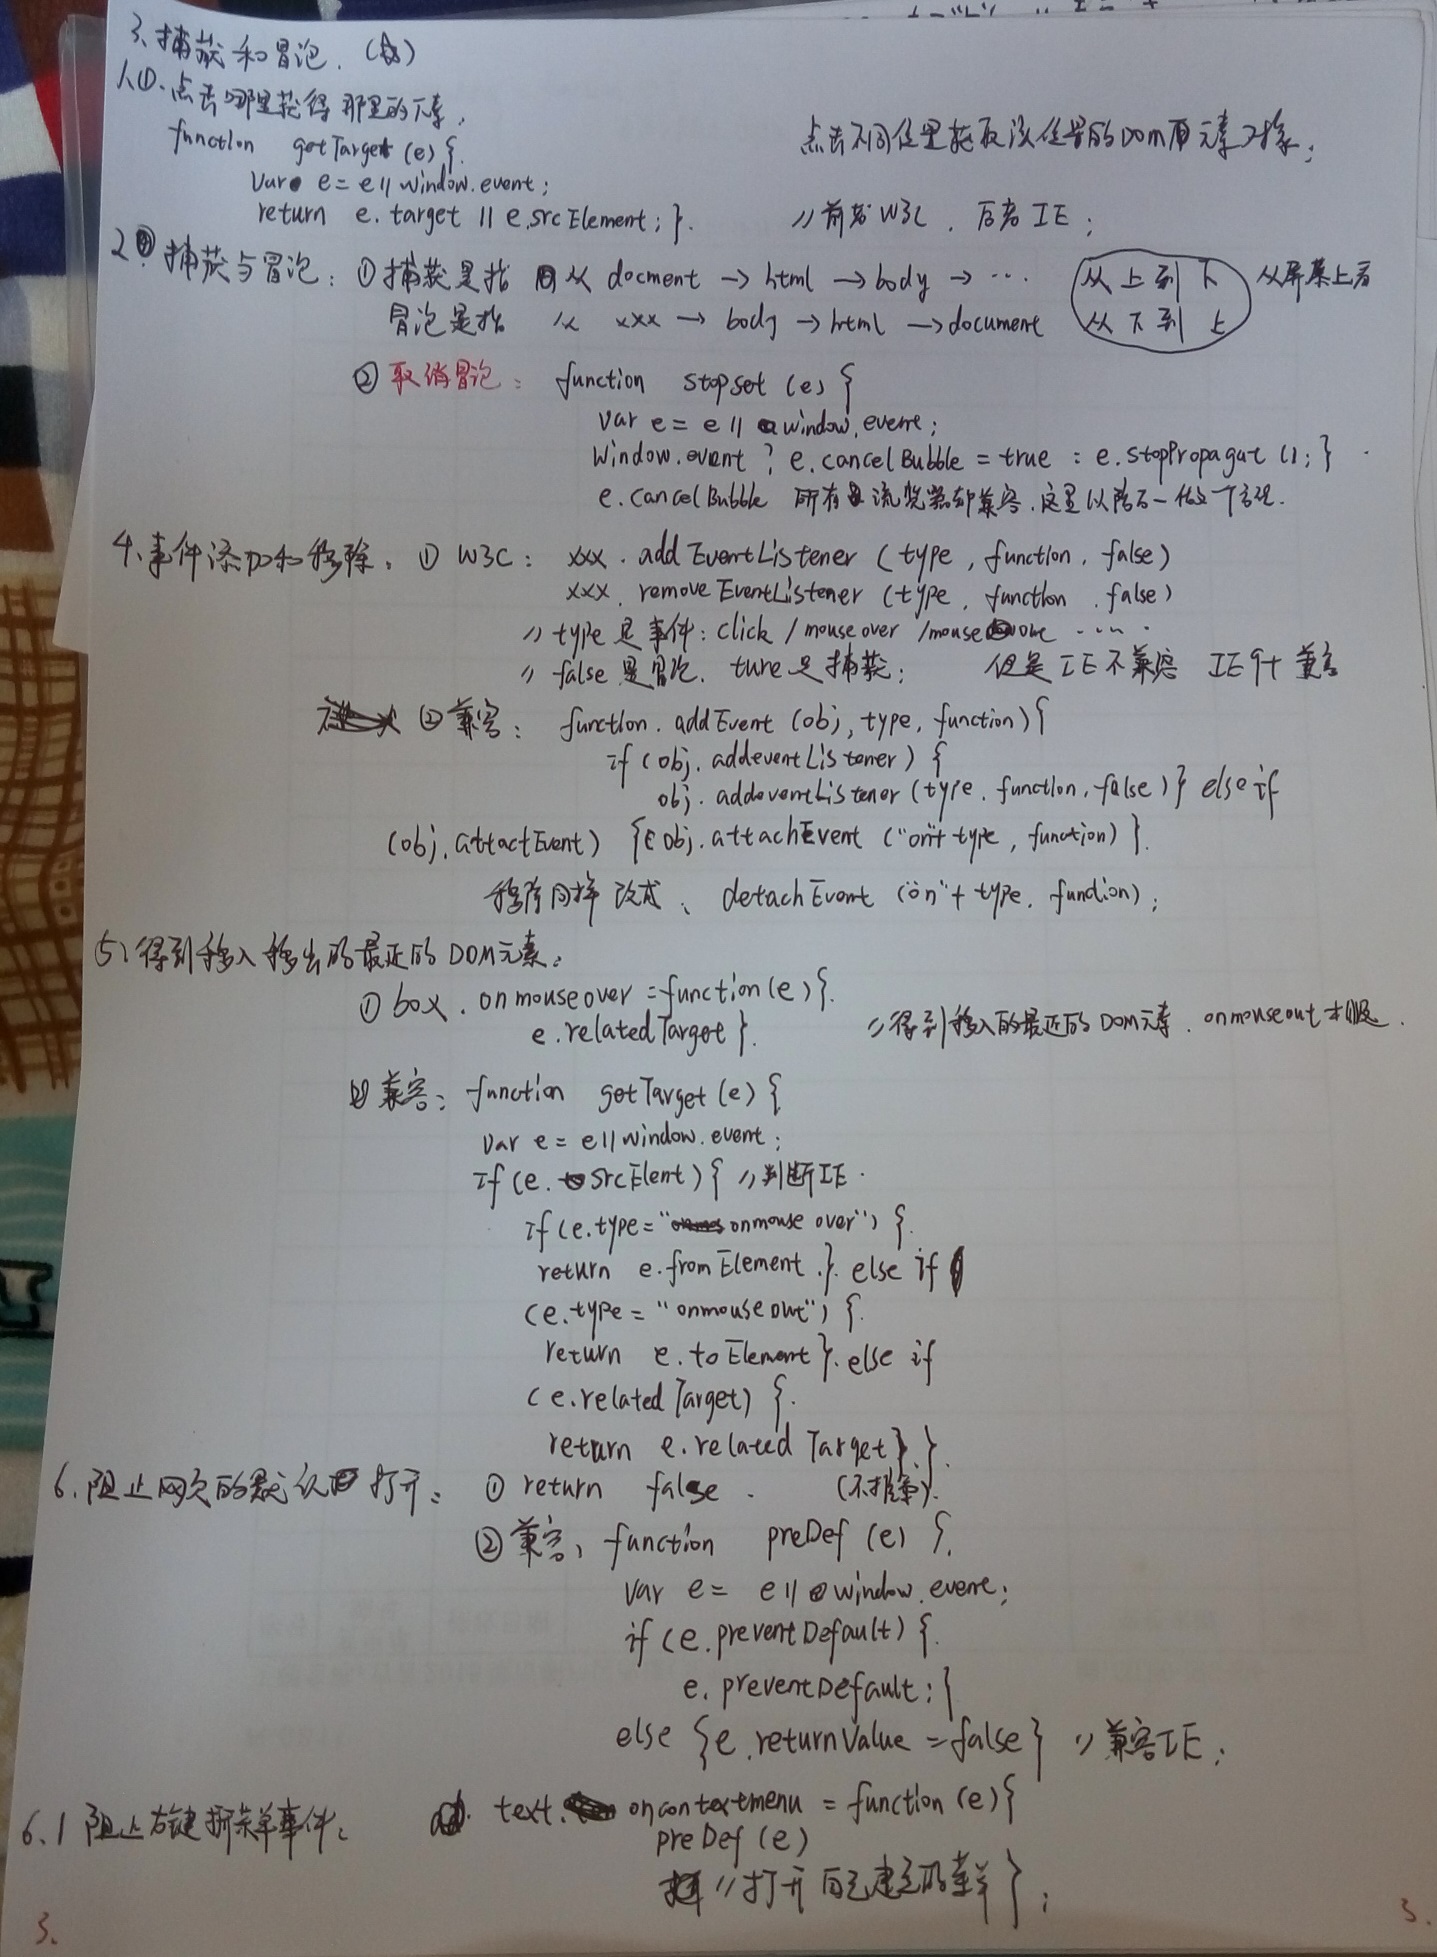 3、捕获和冒泡.（☆）
1、①.点击哪里获得那里的元素,
function getTarget (e) {.
点击不同位置获取该位置的Dom元素对象;
Var e = e || window.event;
return e.target || e.srcElement; }.
// 前者W3C , 后者IE;
2 捕获与冒泡: ① 捕获是指 从 docment → html → body → ...
从上到下 从屏幕上看
冒泡是指 从 xxx → body → html → document
从下到上
② 取消冒泡: function stopset (e) {
Var e = e || window.event;
Window.event ? e.cancelBubble = true : e.stopPropagat (); }
e.cancelBubble 所有 浏览器都兼容.这里以防万一做一个
4、事件添加和移除. ① W3C: xxx . addEventListener (type, function, false)
xxx. removeEventListener (type, function, false)
// type是事件: click / mouseover / mouse
// false是冒泡. ture是捕获; 但是IE不兼容 IE9+ 兼容
② 兼容: function. addEvent (obj, type, function) {
if (obj. addeventListener) {
obj. addeventListener (type. function, false) } else if
(obj. attactEvent) { obj. attachEvent ("on"+ type, function) }.
移除同样改成、 detachEvent ("on"+ type. function);
5、得到移入移出的最近的DOM元素:
① box. onmouseover = function(e) {.
e.relatedTarget }.
// 得到移入的最近的DOM元素. onmouseout 相反.
② 兼容: function getTarget (e) {
Var e = e || window.event;
if (e. srcElent) { // 判断IE.
if (e.type = "onmouse over") {.
return e.fromElement .}. else if
(e.type = "onmouse out") {.
return e.toElement }. else if
(e.relatedTarget) {.
return e.related Target }. }.
6、阻止网页的默认 打开: ① return false . (不推荐).
② 兼容, function preDef (e) {.
Var e = e || window.event;
if (e.preventDefault) {.
e.preventDefault; }
else {e.returnValue = false} // 兼容IE;
6.1 阻止右键 菜单事件: text. oncontextmenu = function (e) {
preDef (e)
// 打开自己建立的菜单 } ;
3. 3.